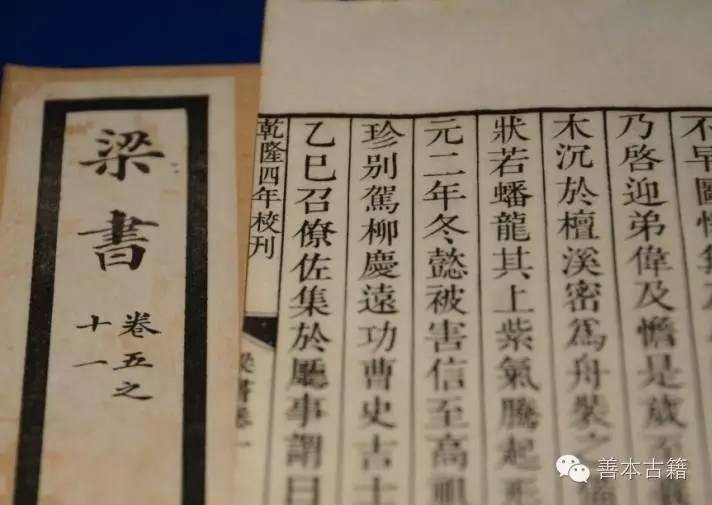 梁書
卷五之
十一
不早圖悔無
乃啓迎弟偉及憺是歲至
木沉於檀溪密爲舟裝之備
狀若蟠龍其上紫氣騰起形
元二年冬懿被害信至高祖
珍別駕柳慶遠功曹史吉士
乙巳召僚佐集於廳事謂曰
乾隆四年校刊
梁書卷一
善本古籍